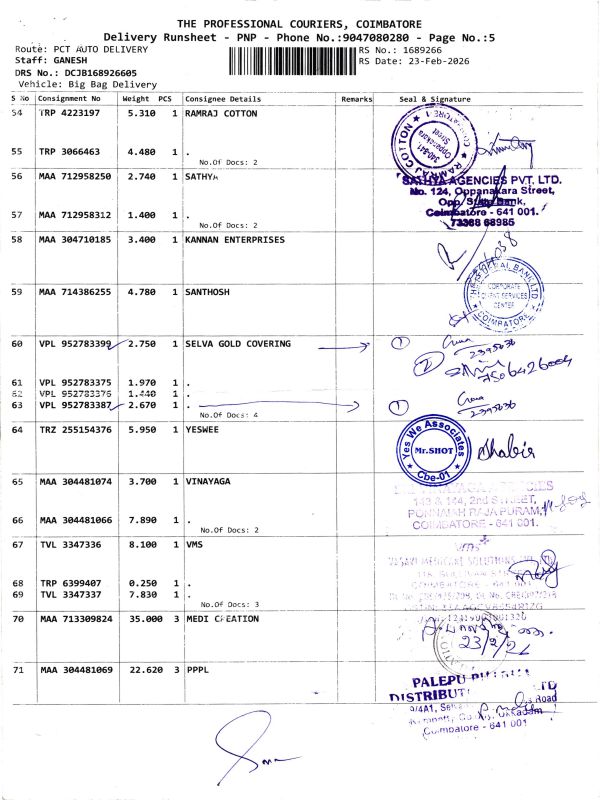 THE PROFESSIONAL COURIERS, COIMBATORE
Delivery Runsheet - PNP - Phone No.:9047080280 - Page No.:5
Route: PCT AUTO DELIVERY RS No.: 1689266
Staff: GANESH RS Date: 23-Feb-2026
DRS No.: DCJB168926605
Vehicle: Big Bag Delivery
S No Consignment No Weight PCS Consignee Details Remarks Seal & Signature
54 TRP 4223197 5.310 1 RAMRAJ COTTON
RAMRAJ COTTON
Oppanakara Street
55 TRP 3066463 4.480 1 .
No.Of Docs: 2
56 MAA 712958250 2.740 1 SATHYA
SATHYA AGENCIES PVT. LTD.
No. 124, Oppanakara Street,
Opp. State Bank,
Coimbatore - 641 001.
73388 68985
57 MAA 712958312 1.400 1 .
No.Of Docs: 2
58 MAA 304710185 3.400 1 KANNAN ENTERPRISES
59 MAA 714386255 4.780 1 SANTHOSH
CORPORATE
CLIENT SERVICES
CENTER
COIMBATORE
60 VPL 952783399 2.750 1 SELVA GOLD COVERING 1
2395036
2
7506426004
61 VPL 952783375 1.970 1 .
62 VPL 952783376 1.440 1 .
63 VPL 952783387 2.670 1 . 1
2395036
No.Of Docs: 4
64 TRZ 255154376 5.950 1 YESWEE
Yes We Associates
Mr.SHOT
Cbe-01
65 MAA 304481074 3.700 1 VINAYAGA
2nd STREET,
PONNAIAH RAJAPURAM,
COIMBATORE - 641 001.
66 MAA 304481066 7.890 1 .
No.Of Docs: 2
67 TVL 3347336 8.100 1 VMS
VMS
68 TRP 6399407 0.250 1 .
69 TVL 3347337 7.830 1 .
No.Of Docs: 3
70 MAA 713309824 35.000 3 MEDI CREATION
23/2/26
71 MAA 304481069 22.620 3 PPPL
PALEPU
DISTRIBUT LTD
Road
Ukkadam
Coimbatore - 641 001